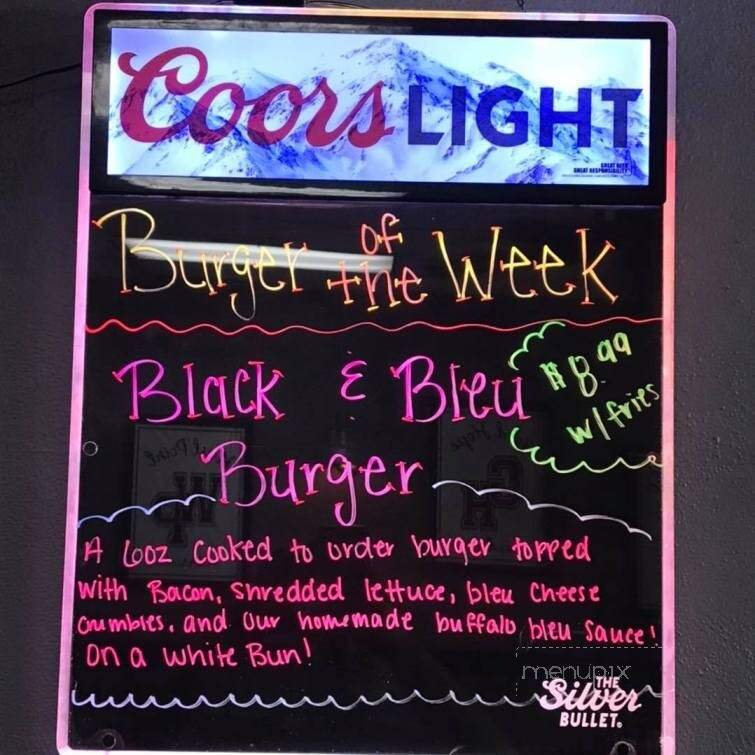 Coors LIGHT
GREAT BEER
GREAT RESPONSIBILITY
Burger of the Week
Black & Bleu
$8.99
w/fries
Burger
A 6oz cooked to order burger topped
with Bacon, shredded lettuce, bleu cheese
crumbles, and our homemade buffalo bleu sauce!
On a white Bun!
menupix
THE
Silver
BULLET.